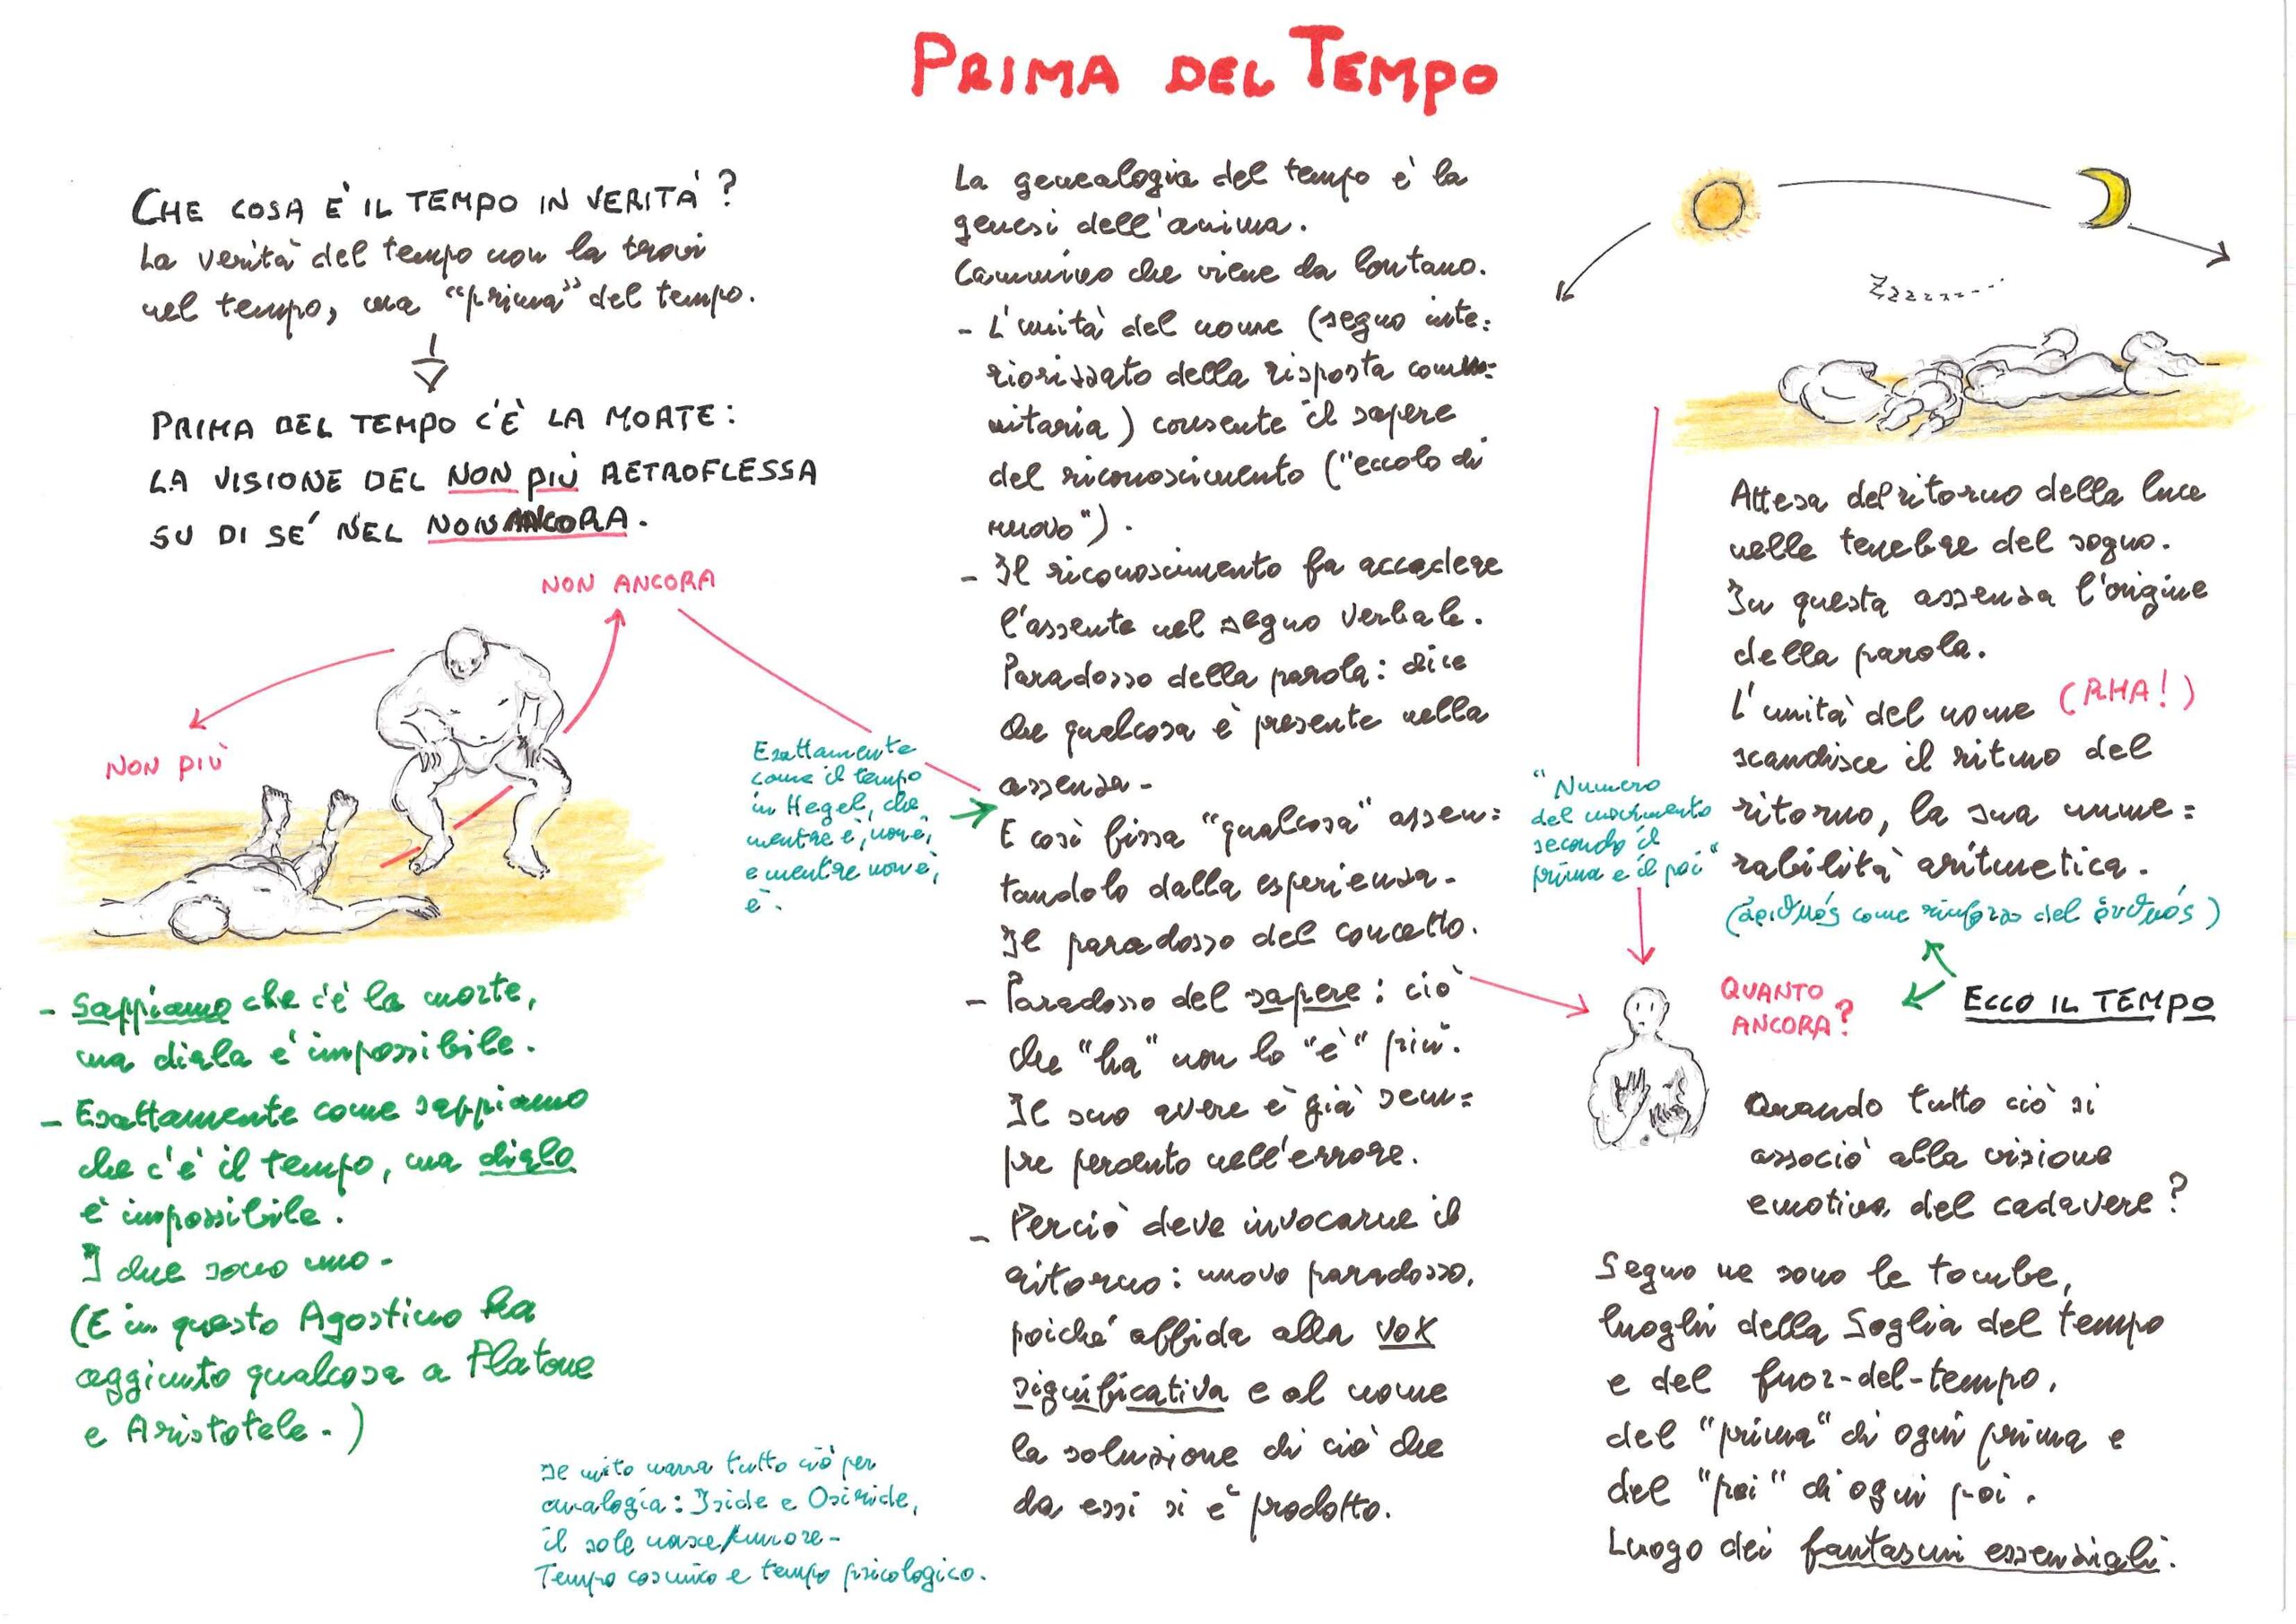 PRIMA DEL TEMPO
CHE COSA È IL TEMPO IN VERITÀ?
La verità del tempo non la trovi
nel tempo, ma "prima" del tempo.
PRIMA DEL TEMPO C'È LA MORTE:
LA VISIONE DEL NON PIÙ RETROFLESSA
SU DI SE' NEL NON ANCORA.
NON ANCORA
NON PIÙ
- Sappiamo che c'è la morte,
ma dirla è impossibile.
- Esattamente come sappiamo
che c'è il tempo, ma dirlo
è impossibile.
I due sono uno.
(E in questo Agostino ha
aggiunto qualcosa a Platone
e Aristotele.)
Il mito narra tutto ciò per
analogia: Iside e Osiride,
il sole nasce/muore-
Tempo cosmico e tempo psicologico.
Esattamente
come il tempo
in Hegel, che
mentre è, non è,
e mentre non è,
è.
La genealogia del tempo è la
genesi dell'anima.
Cammino che viene da lontano.
- L'unità del nome (segno inte=
riorizzato della risposta comu=
nitaria) consente il sapere
del riconoscimento ("eccolo di
nuovo").
- Il riconoscimento fa accadere
l'assente nel segno verbale.
Paradosso della parola: dice
che qualcosa è presente nella
assenza-
E così fissa "qualcosa" assen=
tandolo dalla esperienza.
Il paradosso del concetto.
- Paradosso del sapere: ciò
che "ha" non lo "è" più.
Il suo avere è già sem=
pre perduto nell'errore.
- Perciò deve invocarne il
ritorno: nuovo paradosso,
poiché affida alla vox
significativa e al nome
la soluzione di ciò che
da essi si è prodotto.
Zzzzzzz....
Attesa del ritorno della luce
nelle tenebre del sogno.
In questa assenza l'origine
della parola.
L'unità del nome (RHA!)
scandisce il ritmo del
ritorno, la sua nume=
rabilità aritmetica.
(ἀριθμός come rinforzo del ῥυθμός)
"Numero
del movimento
secondo il
prima e il poi"
QUANTO
ANCORA?
ECCO IL TEMPO
Quando tutto ciò si
associò alla visione
emotiva del cadavere?
Segno ne sono le tombe,
luoghi della Soglia del tempo
e del fuor-del-tempo,
del "prima" di ogni prima e
del "poi" di ogni poi.
Luogo dei fantasmi essenziali.